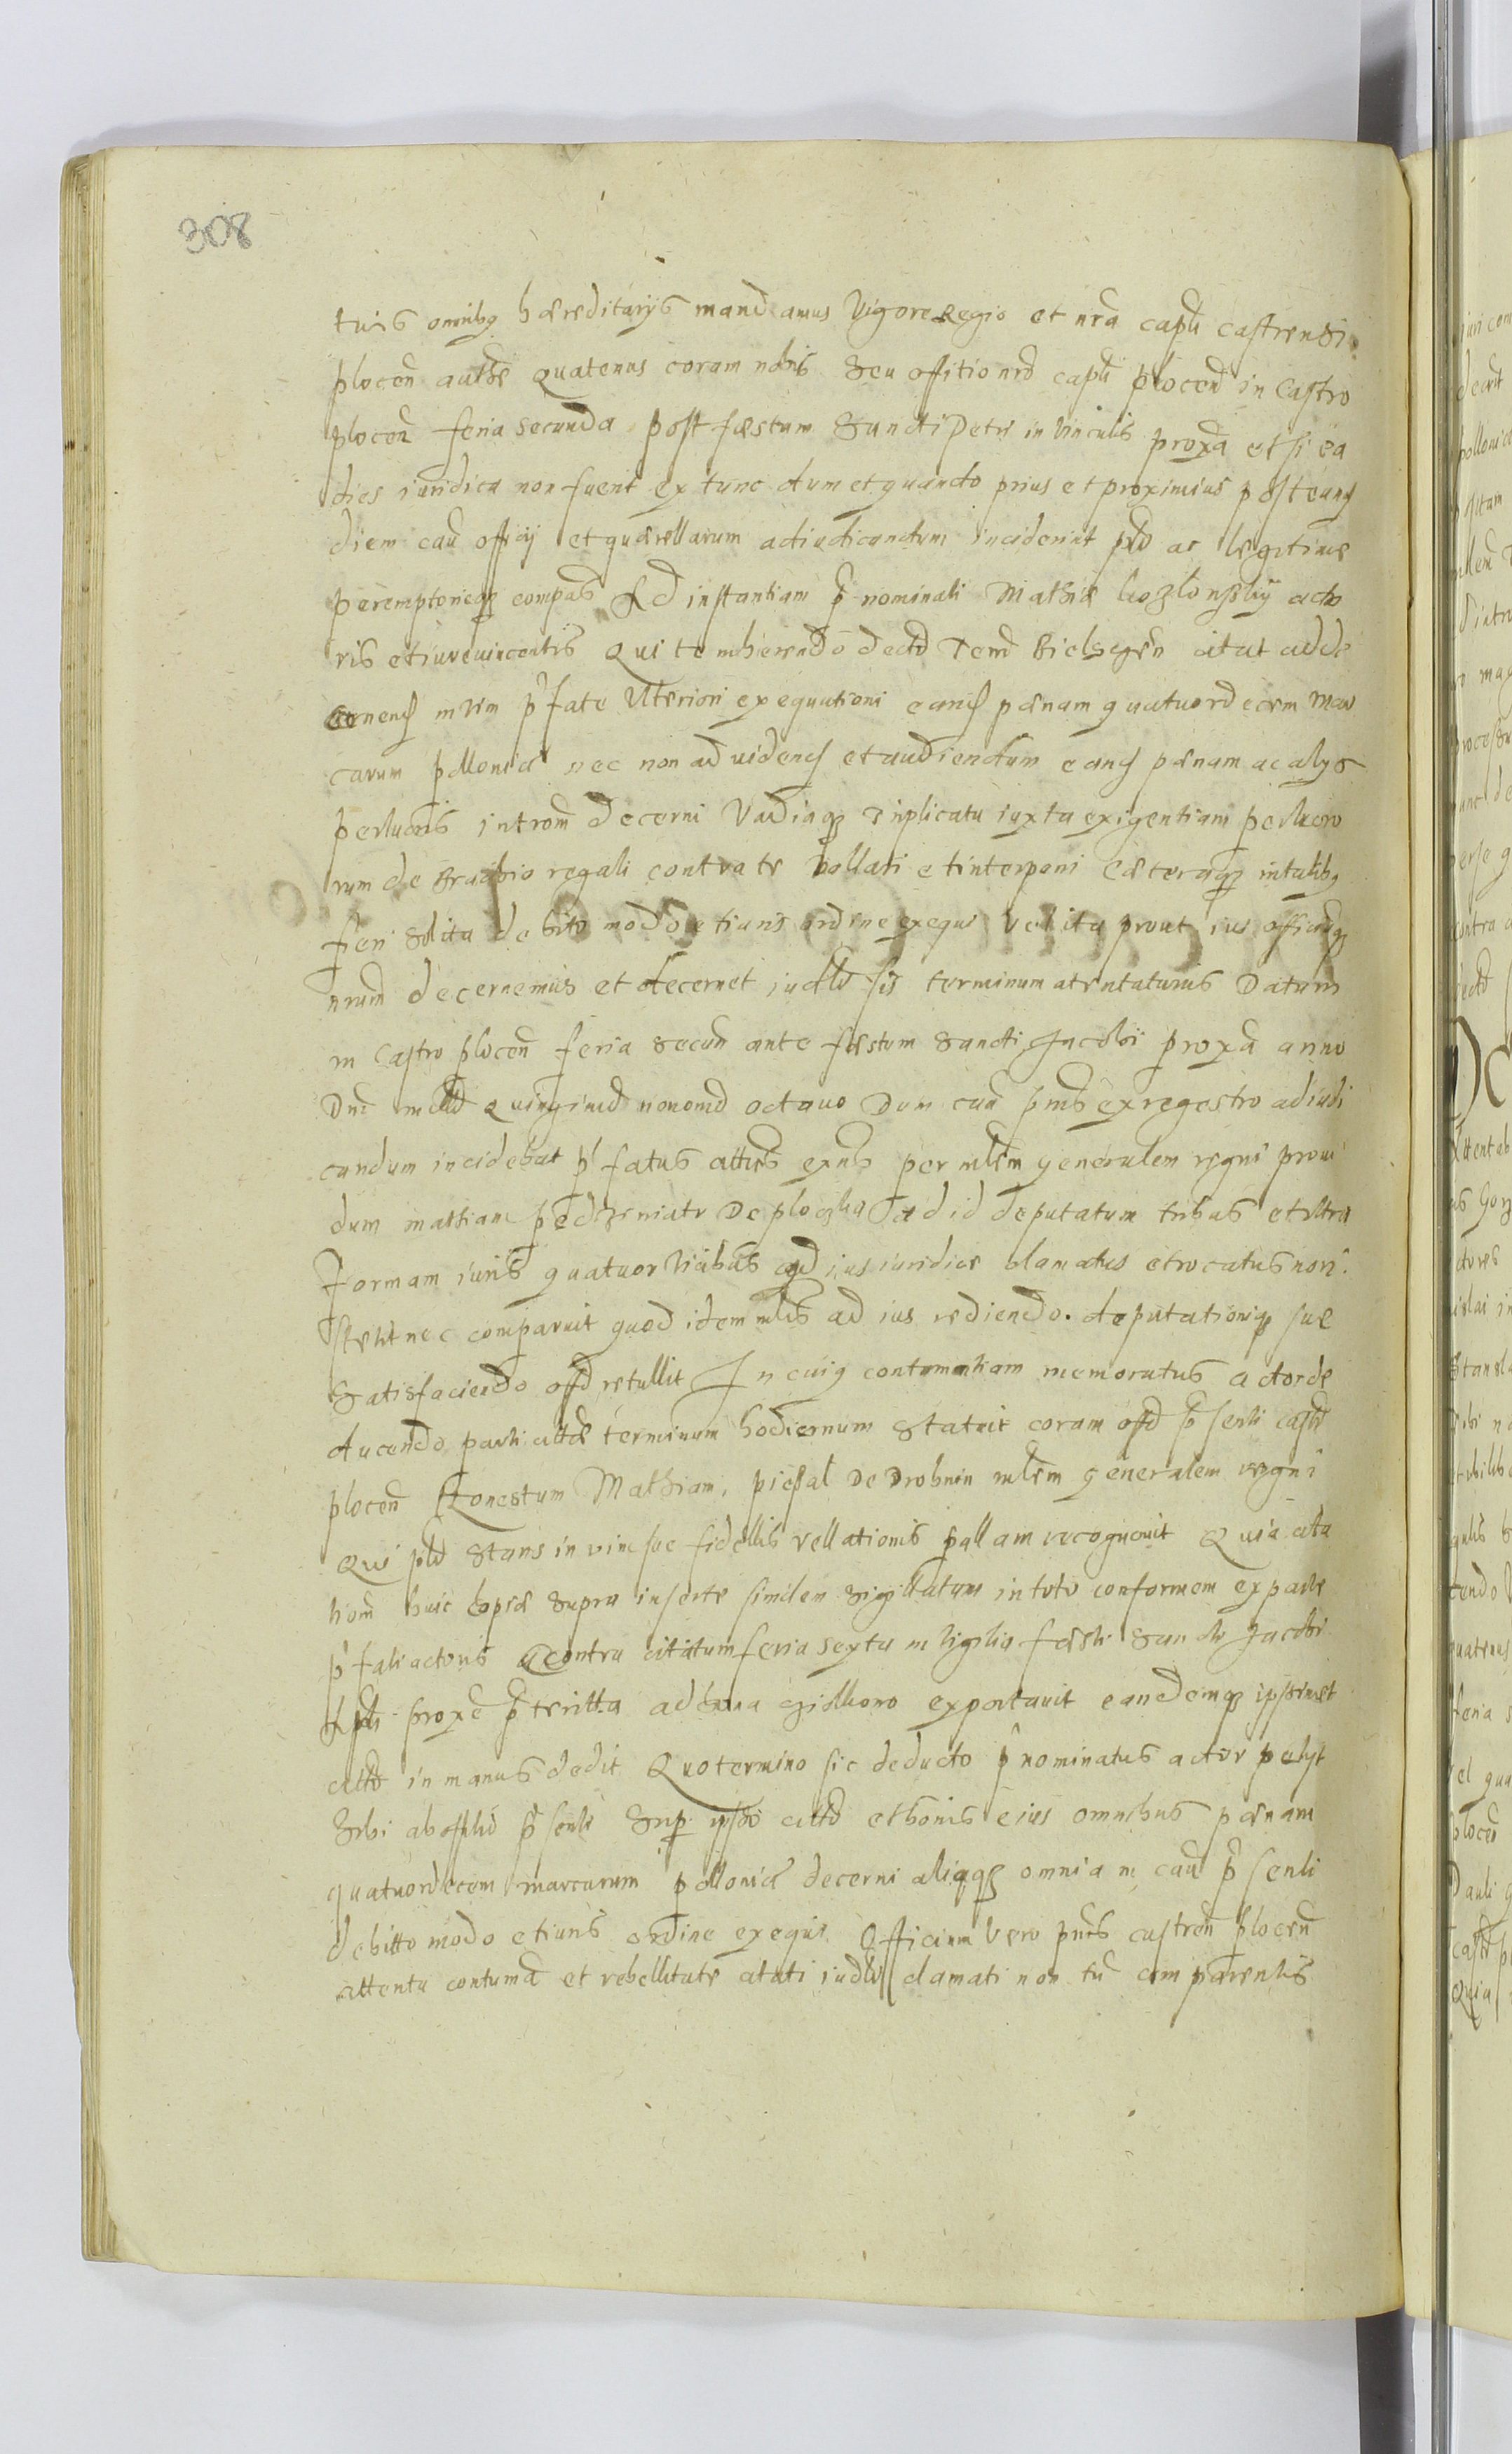 308
tuis omnibq haereditarijs mandamus Vigore Regio et nra capli castrensi
plocen authe Quatenus coram nobis Seu offitio nro capli plocen in Castro
plocen feria secunda post faestum Sancti Petri in Vinculis proxa et si ea
dies iuridica non fuerit ex tunc dum et quando prius et proximius post eand
diem cau officij et quaerellarum adiudicandum inciderint plr ac legitime
peremptorieq compas Ad instantiam p nominati Mathiae acto
ris et iure vincentis Qui te inhaerendo decto Terrae Bielscen citat ad de
cernend in rem pfate Ulteriori exequutioni eand paenam quatuordecem mar
carum pollonicae nec non ad uidend et audiendum eand paenam ac alijs
perlucris introm decerni Vadiaq triplicata iuxta exigentiam perlucro
rum de Brachio regali contra te vallari et interponi Caeteraq in talibq
fieri Solita debito modo et iuris ordine exequi Vel ita prout ius officiumq
nrum decernemus et decernet iudlr sis terminum atentaturus Datum
in Castro plocen feria Secun ante faestum Sancti Jacobi proxa anno
Dni mill Quingined nonomd octauo Dum cau pns ex regestro adiudi
candum incidebat pfatus cittus exns per mlem generalem regni proui
dum mathiam de ploczko ad id deputatum tribus et ultra
formam iuris quatuor vicibus ad ius iuridice clamatus et vocatus non
stetit nec comparuit quod idem mlis ad ius rediendo deputationiq suae
Satisfaciendo offo retullit In cuiq contumatiam memoratus actor de
ducendo parti cittae terminum hodiernum Statuit coram offo psenti castr
plocen Honestum Mathiam, piesal De Drobnin mlem generalem regni
Qui pld Stans in vim sue fidellis rellationis pallam recognouit Quia cita
tiom huic copiae Supra inserte similem Sigillatum in toto conformem ex parte
pfati actoris contra citatum feria sexta in Vigilia faesti Sancti Jacobi
Apli proxe pteritta ad bona exportauit eandemq ipsimet
citto in manus dedit Quo termino sic deducto pnominatus actor petijt
Sibi ab offo psenti Sup ipso citto et bonis eius omnibus paenam
quatuordecem marcarum pollonicae decerni aliaqq omnia in cau psenti
debitto modo et iuris ordine exequi Officium Vero pns castren plocen
attenta contuma et rebellitate citati iudlr clamati non tn comparentis